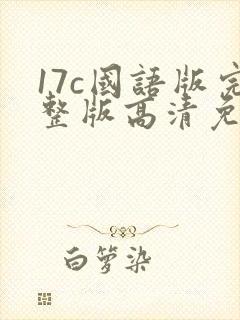 17c國語版完
整版高清免
白箩染